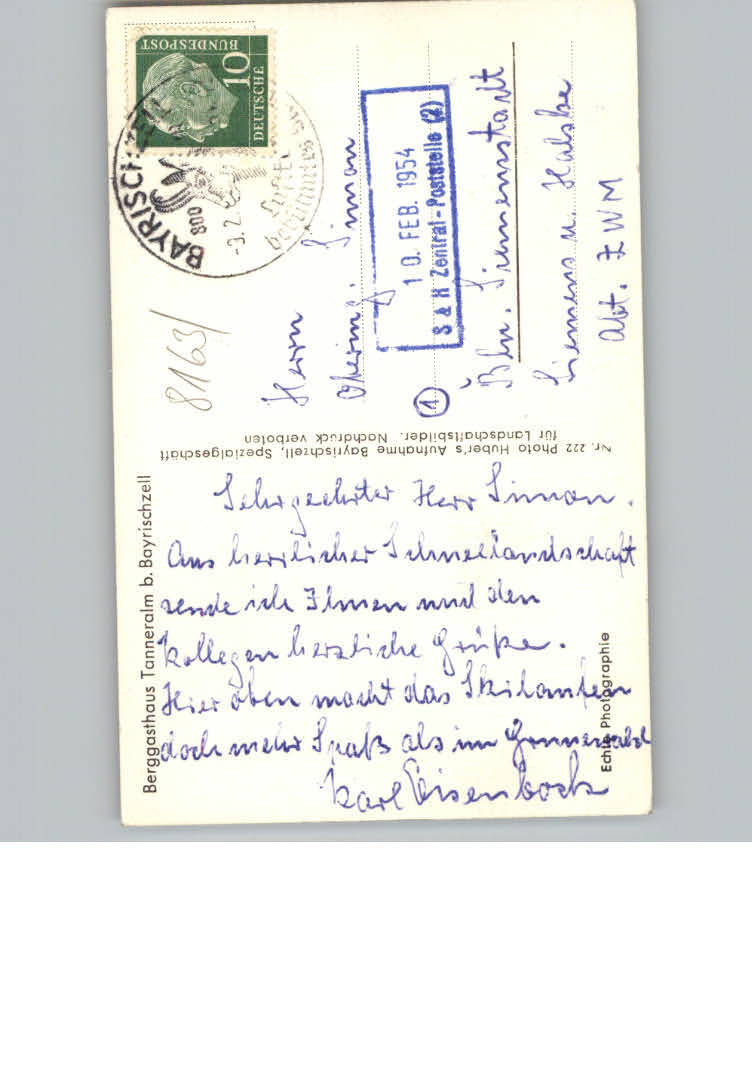 Berggasthaus Tanneralm b. Bayrischzell
Sehr geehrter Herr Simon.
Aus herrlicher Schneelandschaft
sende ich Ihnen und den
Kollegen herzliche Grüße.
Hier oben macht das Skilaufen
doch mehr Spaß als im Grunewald
Karl Eisenbock
Echte Photographie
Nr. 222 Photo Huber's Aufnahme Bayrischzell, Spezialgeschäft
für Landschaftsbilder. Nachdruck verboten
8163/
DEUTSCHE
BUNDESPOST
10
BAYRISCHZELL
800
-9.2.
berühmtes
Herrn
Obering. Simon
10. FEB. 1954
S & H Zentral-Poststelle (2)
(1) Bln. Siemensstadt
Siemens u. Halske
Abt. ZWM